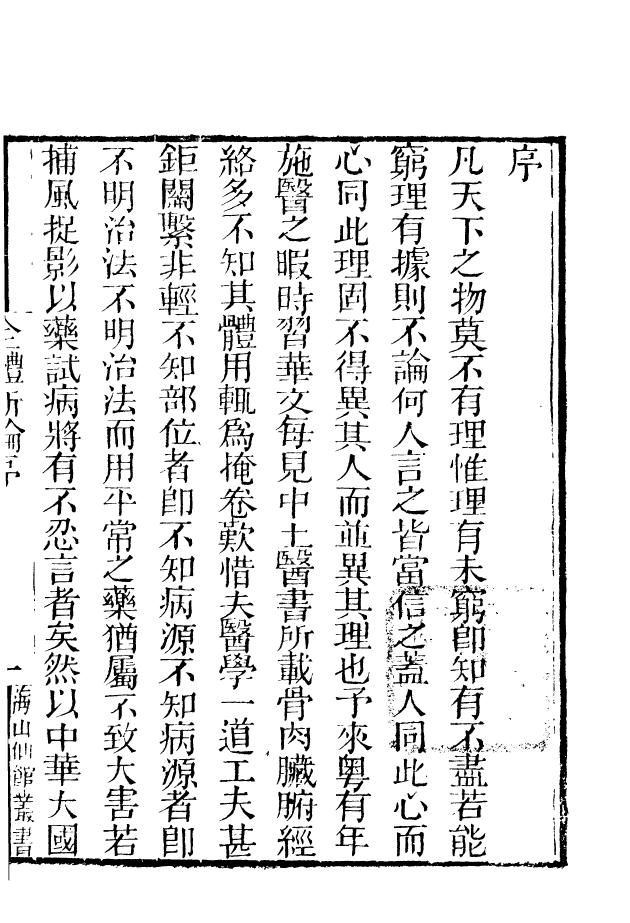 序
凡天下之物莫不有理惟理有未窮卽知有不盡若能
窮理有據則不論何人言之皆當信之蓋人同此心而
心同此理固不得異其人而並異其理也予來粵有年
施醫之暇時習華文每見中土醫書所載骨肉臟腑經
絡多不知其體用輒爲掩卷歎惜夫醫學一道工夫甚
鉅關繫非輕不知部位者卽不知病源不知病源者卽
不明治法不明治法而用平常之藥猶屬不致大害若
捕風捉影以藥試病將有不忍言者矣然以中華大國
全體新論序
一
海山仙館叢書